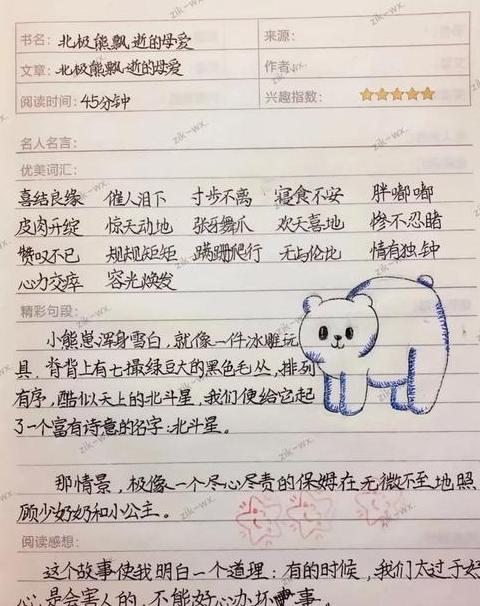 书名：北极熊飘逝的母爱 来源：
文章：北极熊飘逝的母爱 作者：
阅读时间：45分钟 兴趣指数：
名人名言：
优美词汇：
喜结良缘 催人泪下 寸步不离 寝食不安 胖嘟嘟
皮肉开绽 惊天动地 张牙舞爪 欢天喜地 惨不忍睹
赞叹不已 规规矩矩 蹒跚爬行 无与伦比 情有独钟
心力交瘁 容光焕发
精彩句段：
小熊崽浑身雪白，就像一件冰雕玩
具，脊背上有七撮绿豆大的黑色毛丛，排列
有序，酷似天上的北斗星，我们便给它起
了一个富有诗意的名字：北斗星。
那情景，极像一个尽心尽责的保姆在无微不至地照
顾少奶奶和小公主。
阅读感想：
这个故事使我明白一个道理：有的时候，我们太过于好
心，是会害人的，不能好心办坏事。
zik-wx
zik-wx
zik-wx
zik-wx
zik-wx
zik-wx
zik-wx
zik-wx